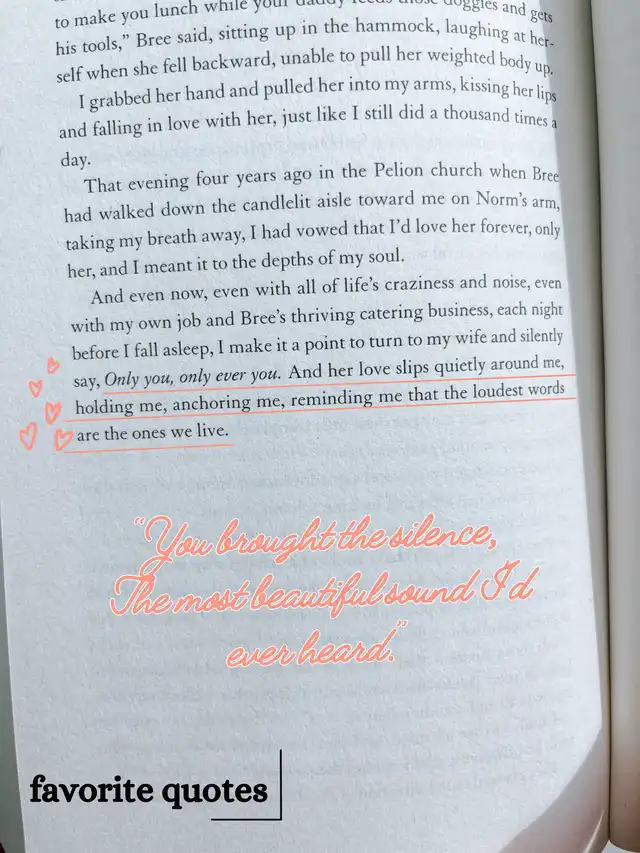 to make you lunch while your daddy feeds those doggies and gets
his tools,” Bree said, sitting up in the hammock, laughing at her-
self when she fell backward, unable to pull her weighted body up.
I grabbed her hand and pulled her into my arms, kissing her lips
and falling in love with her, just like I still did a thousand times a
day.
That evening four years ago in the Pelion church when Bree
had walked down the candlelit aisle toward me on Norm’s arm,
taking my breath away, I had vowed that I’d love her forever, only
her, and I meant it to the depths of my soul.
And even now, even with all of life’s craziness and noise, even
with my own job and Bree’s thriving catering business, each night
before I fall asleep, I make it a point to turn to my wife and silently
say, Only you, only ever you. And her love slips quietly around me,
holding me, anchoring me, reminding me that the loudest words
are the ones we live.
“You brought the silence,
The most beautiful sound I'd
ever heard.”
favorite quotes